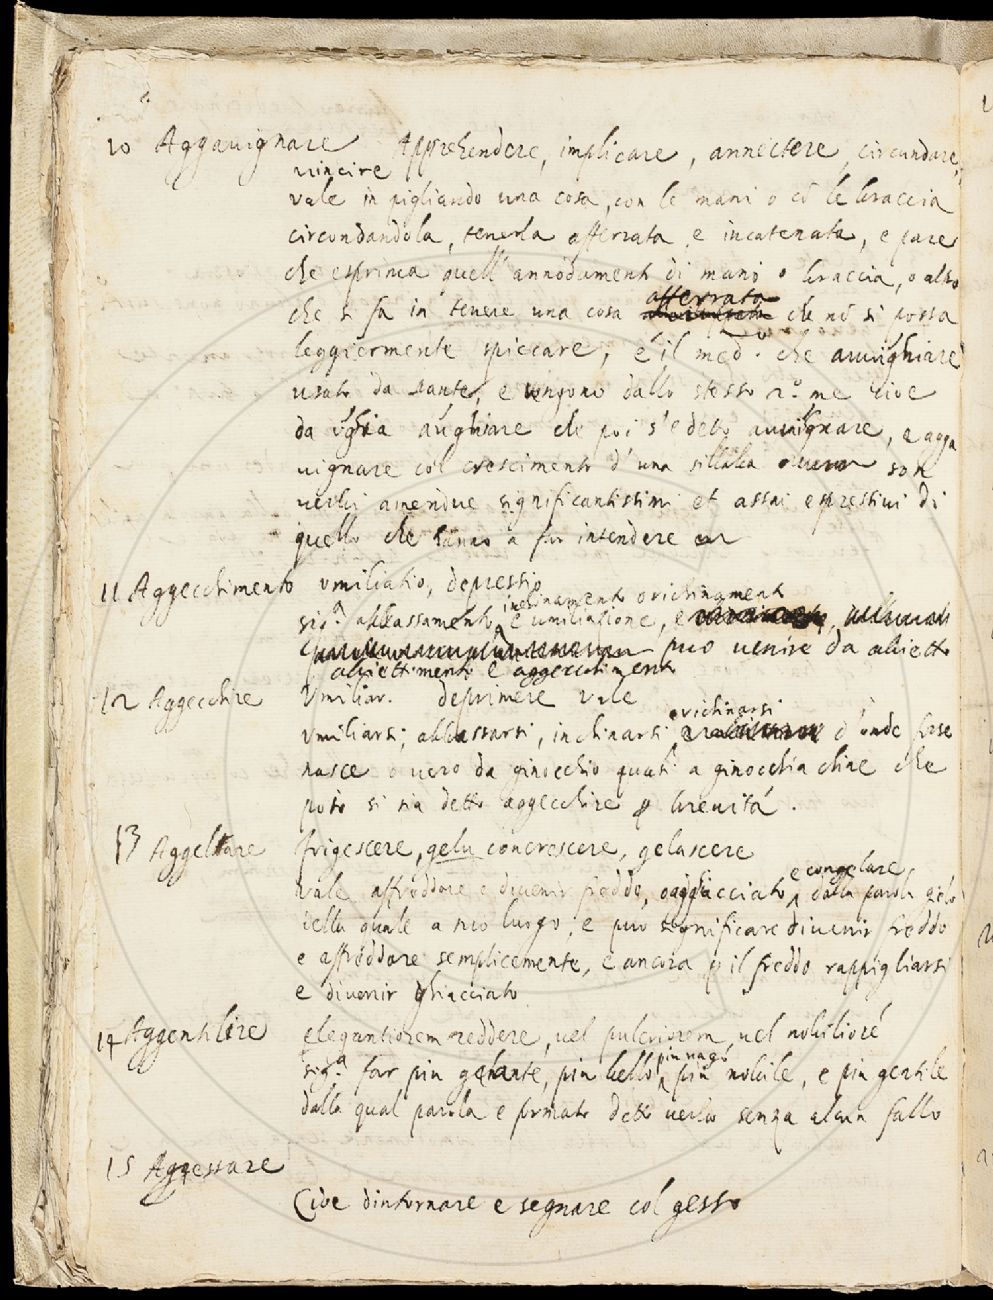 10 Aggauignare Apprehendere, implicare, annectere, circundare,
uincire
vale in pigliando una cosa, con le mani o cō le braccia
circondandola, tenerla afferrata e incatenata, e pare
che esprima quell'annodamento di mani o braccia, o altro
che si fa in tenere una cosa afferrata che nō si possa
leggiermente spiccare, è il medo. che auuighiare
usato da Dante, e vengono dallo stesso n.o me cioe
da ughia aughiare che poi s'e detto auuignare, e agga
uignare col crescimento d'una sillaba son
uerbi amendue significantissimi et assai espressiui di
quello che hanno a far intendere
11 Aggecchimento vmiliatio, depressio
inchinamento o richinamento
sig.a abbassamento, e umiliazione, e
può uenire da abietto
abiettimento e aggecchimento
12 Aggecchire Vmiliar. deprimere vale
o richinarsi
vmiliarsi, abbassarsi, inchinarsi d'onde forse
nasce o uero da ginocchio quasi a ginocchia chine che
poto si sia detto aggecchire p breuità.
13 Aggelare frigescere, gelu concrescere, gelascere
e congelare
vale affreddare e diuenir freddo, o agghiacciato, dalla parola gielo
della quale a suo luogo, e puo significare diuenir freddo
e affreddare semplicemente, e ancora p il freddo rappigliarsi
e diuenir ghiacciato
14 Aggentilire elegantiorem reddere, uel pulcriorem uel nobilioré
più uago
sig.a far più galante, più bello, più nobile, e più gentile
dalla qual parola e formato detto uerbo senza alcun fallo
15 Aggessare
Cioe dintornare e segnare col gesso